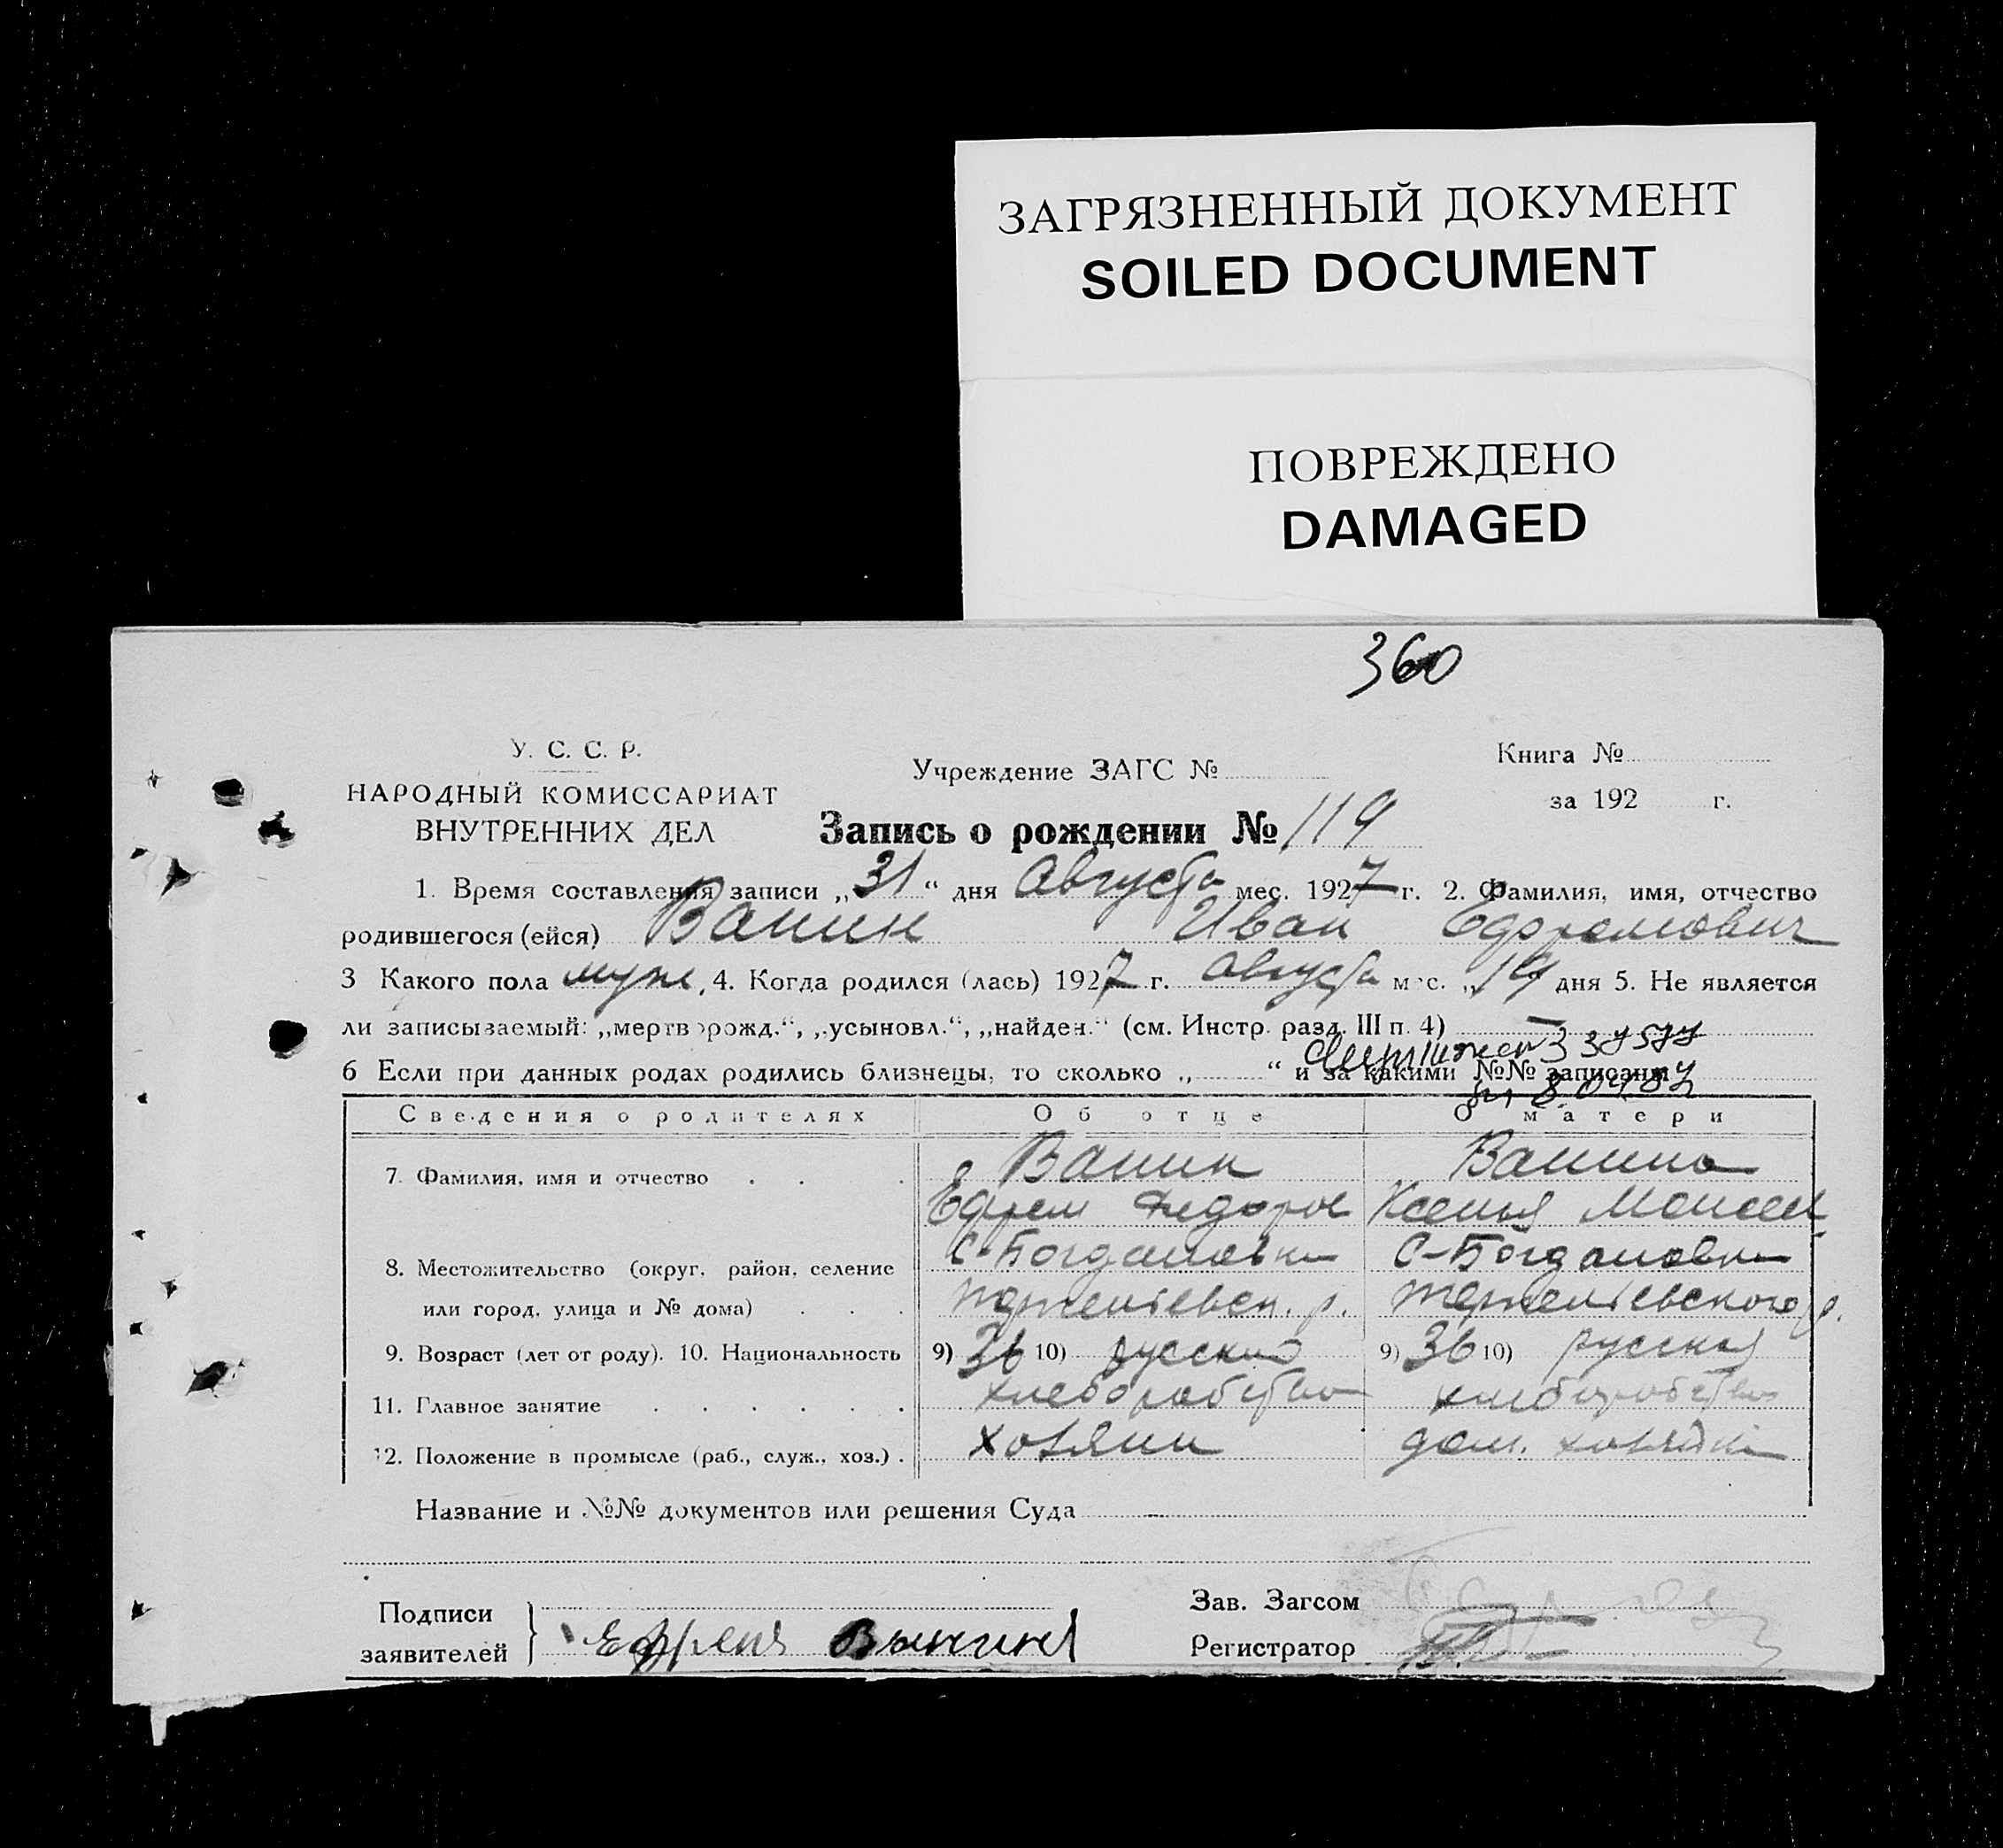 ЗАГРЯЗНЕННЫЙ ДОКУМЕНТ
SOILED DOCUMENT
ПОВРЕЖДЕНО
DAMAGED
360
У. С. С. Р.
НАРОДНЫЙ КОМИССАРИАТ
ВНУТРЕННИХ ДЕЛ
Учреждение ЗАГС №
Книга №
за 192 г.
Запись о рождении № 119
1. Время составления записи „31“ дня Августа мес. 1927 г. 2. Фамилия, имя, отчество
родившегося (ейся) Ванин Иван Ефремович
3 Какого пола муж. 4. Когда родился (лась) 1927 г. Августа мес. „19 дня 5. Не является
ли записываемый: „мертворожд.“, „усыновл.“, „найден.“ (см. Инстр. разд. III п. 4) —
6 Если при данных родах родились близнецы, то сколько „ “ и за какими №№ записаны
Сведения о родителях Об отце О матери
7. Фамилия, имя и отчество Ванин Ванина
Ефрем Федоров Ксенья Моисеев
8. Местожительство (округ, район, селение С-Богдановка С-Богдановка
или город, улица и № дома) р. р.
9. Возраст (лет от роду). 10. Национальность 9) 36 10) русский 9) 36 10) русская
11. Главное занятие хлеборобство хлеборобство
12. Положение в промысле (раб., служ., хоз.) хозяин дом. хозяйка
Название и №№ документов или решения Суда —
Подписи
заявителей
Ефрем Ванин
Зав. Загсом
Регистратор